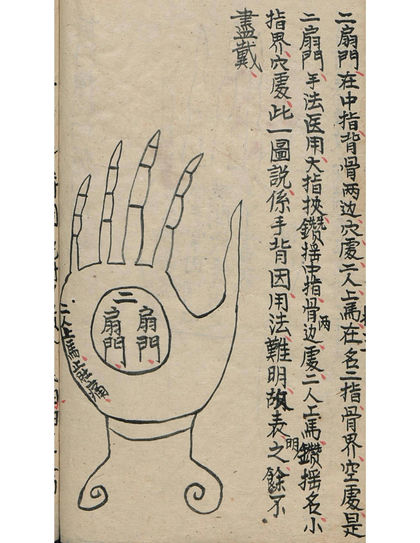 二扇門在中指背骨两边穴處二人上馬在名二指骨界空處是
二扇門手法医用大指挾鑽搖中指骨两边處二人上馬鑽搖名小
指界穴處此一圖説係手背因用法難明故表明之餘不
盡戴
二
扇門
扇門
二人上馬